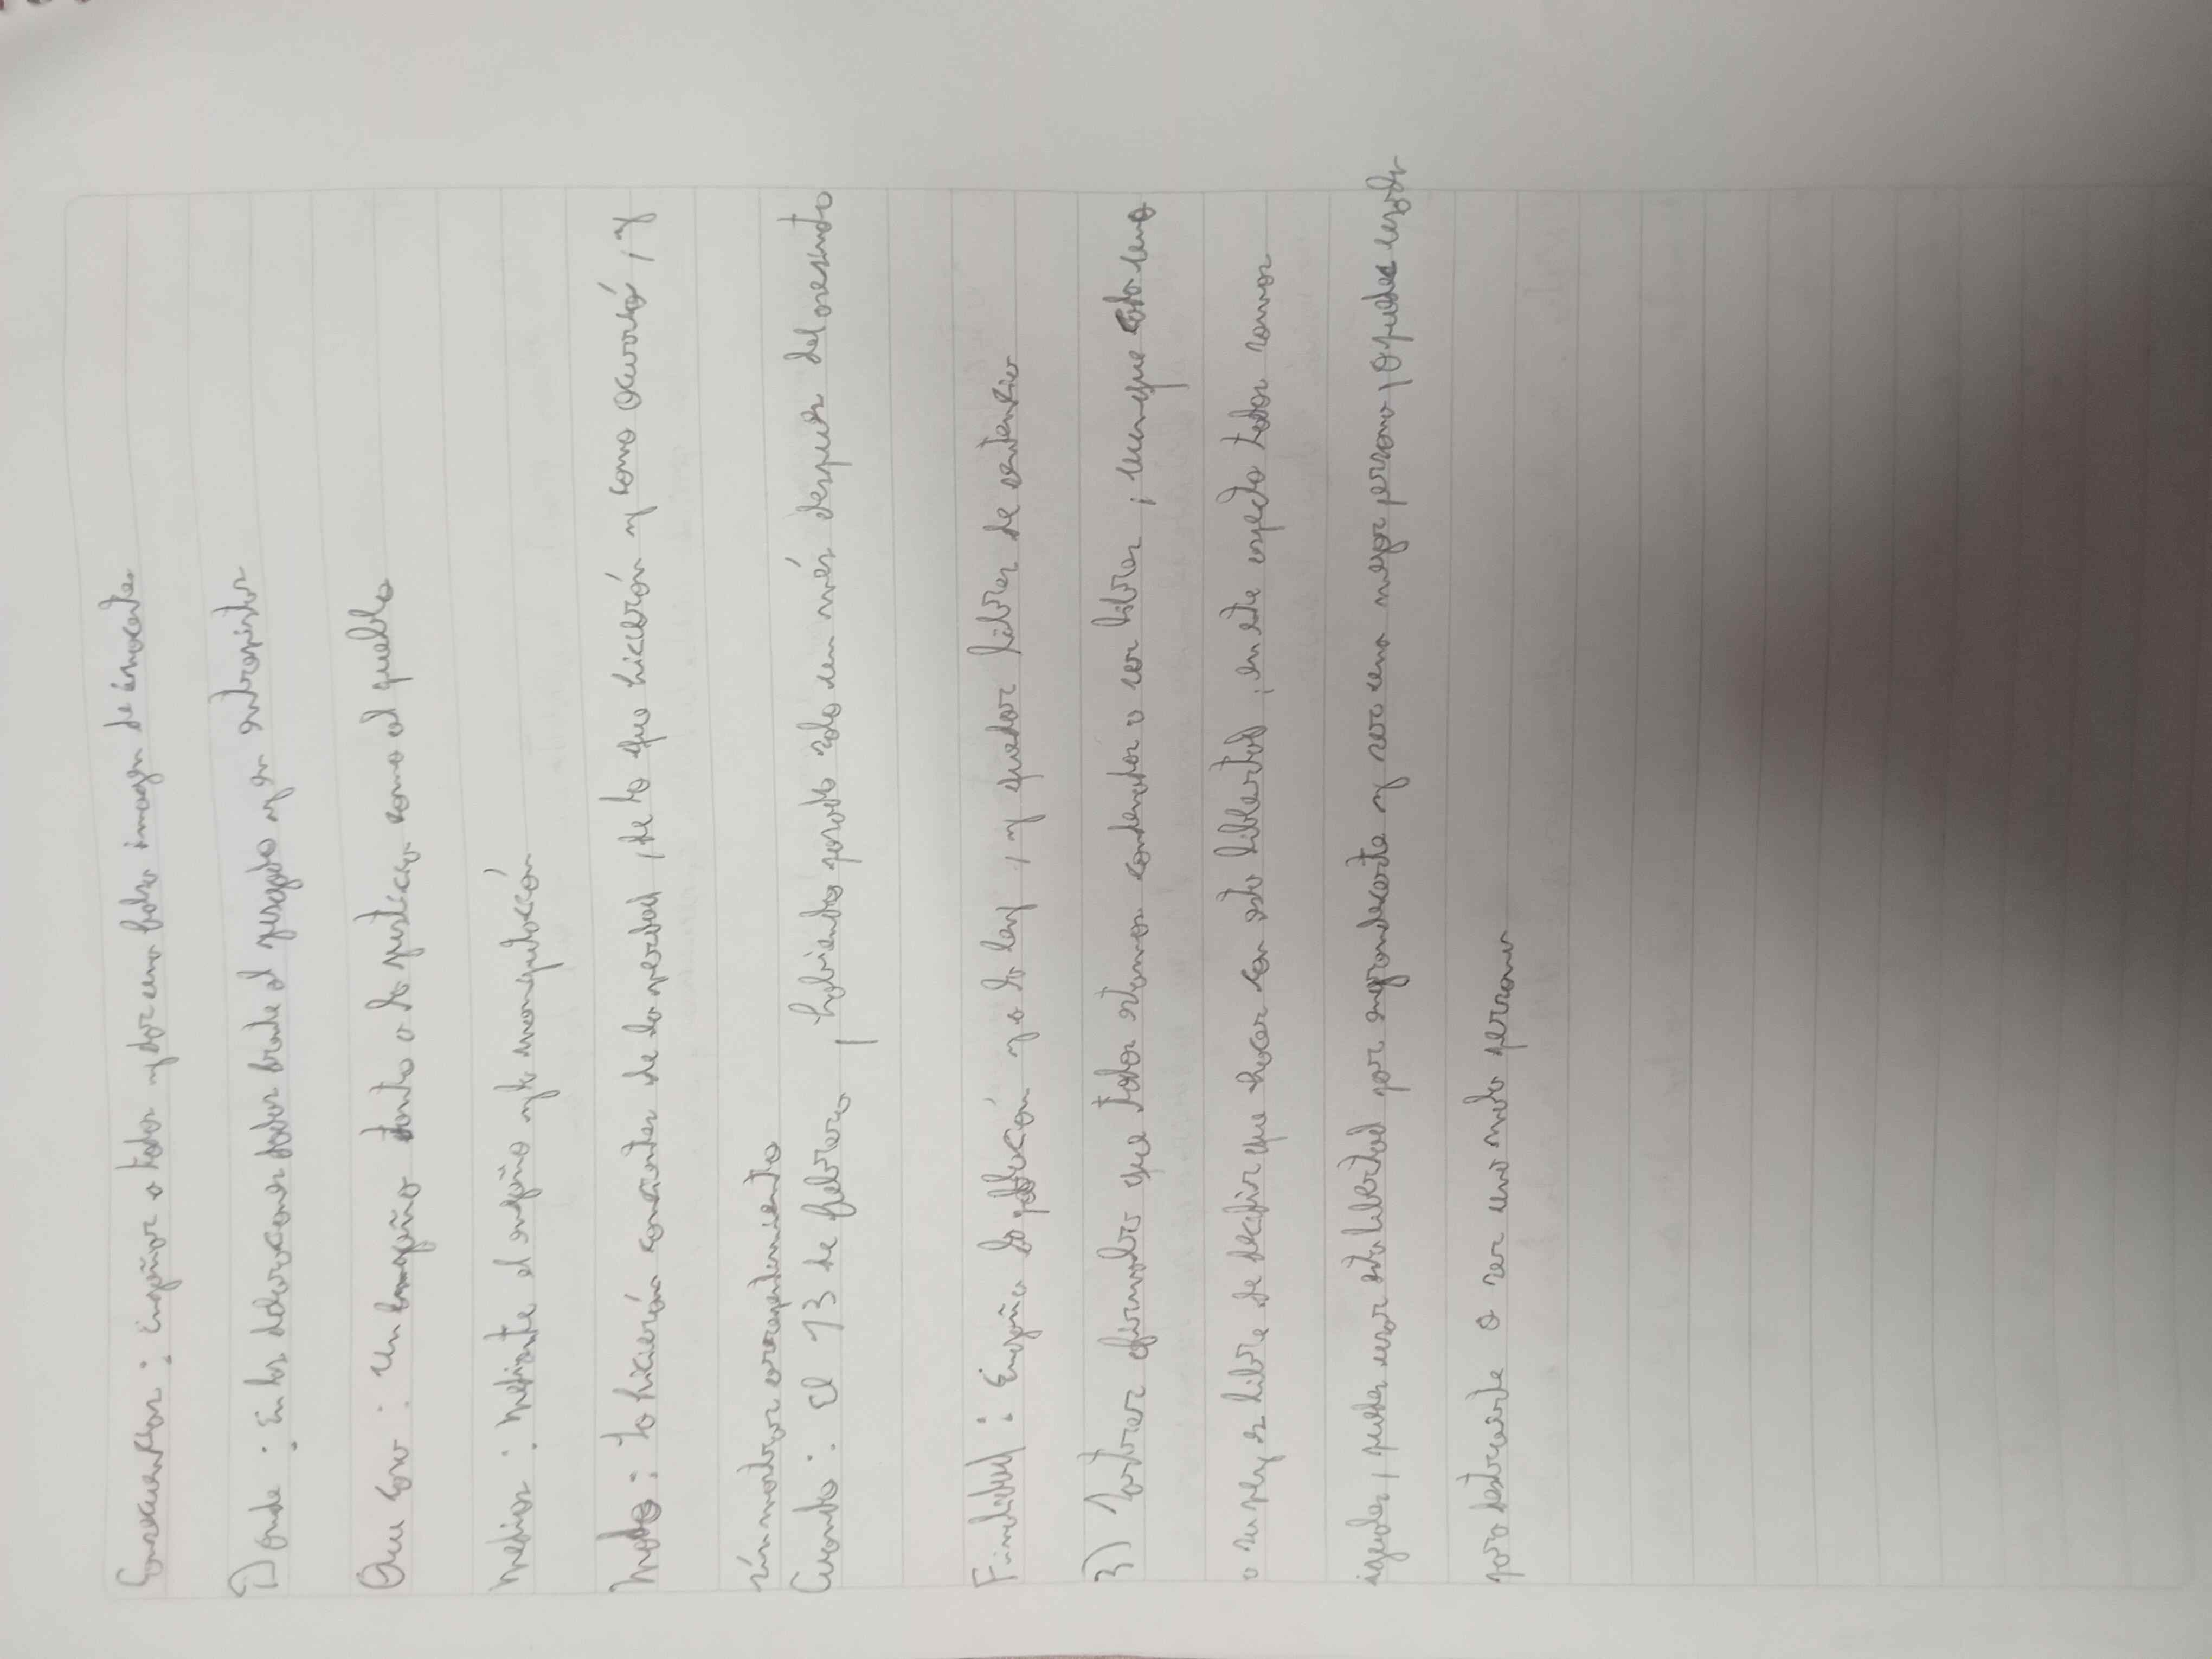 Consecuencias : engañar a todos y dar una falsa imagen de inocentes
Donde : En las declaraciones dadas frente al juzgado y en entrevistas
Que cosa : Un engaño tanto a la justicia como al pueblo
Medios : Mediante el engaño y la manipulación
Modo : Lo hicierón conscientes de la verdad , de lo que hicierón y como ocurrió , y
sin mostrar arrepentimiento
Cuando : El 13 de febrero , habiendo pasado solo un més despues del asesinato
Finalidad : Engañar la población y a la ley , y quedar libres de sentencia
3) Sartrer afirmaba que todos estamos condenados a ser libres , aunque cada uno
a su vez es libre de decidir que hacer con esta libertad , en este aspecto todos somos
iguales , puedes usar esta libertad por engrandecerte y ser una mejor persona , o puedes usarla
para destruirte o ser una mala persona